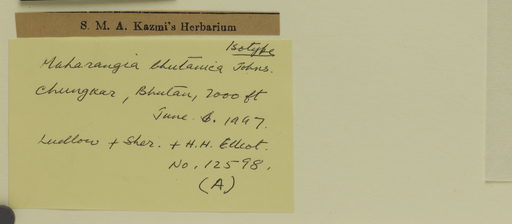 S. M. A. Kazmi's Herbarium
Isotype
Maharangia bhutanica Johns.
Chungkar, Bhutan, 7000 ft
June 6. 1947.
Ludlow + Sher. + H.H. Elliot.
No. 12598.
(A)